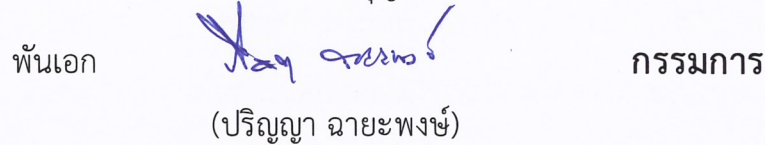 พันเอก กรรมการ
(ปริญญา ฉายะพงษ์)